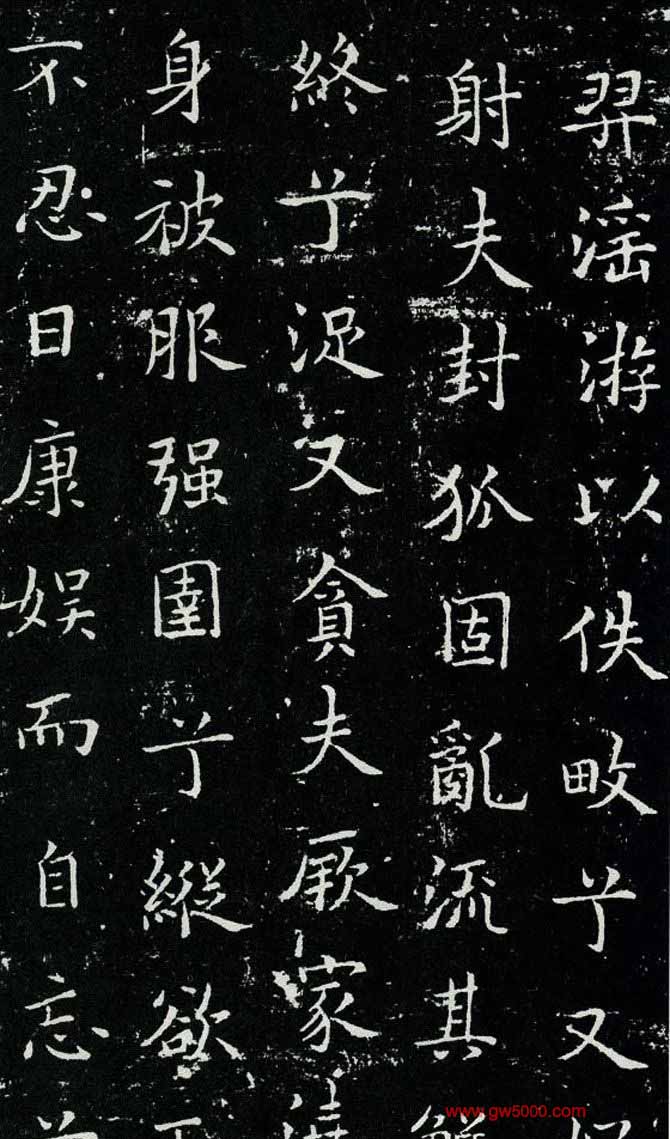 羿淫游以佚畋兮又
射夫封狐固亂流其
終兮浞又貪夫厥家
身被服强圉兮縱欲
不忍日康娛而自忘
www.gw5000.com